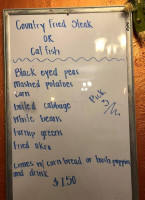 Country Fried Steak
OR
Cat fish
Black eyed peas
Mashed potatoes
corn
boiled cabbage
White beans
turnip greens
Fried okra
Pick
Comes w/ corn bread or hush puppies
and drink
$7.50